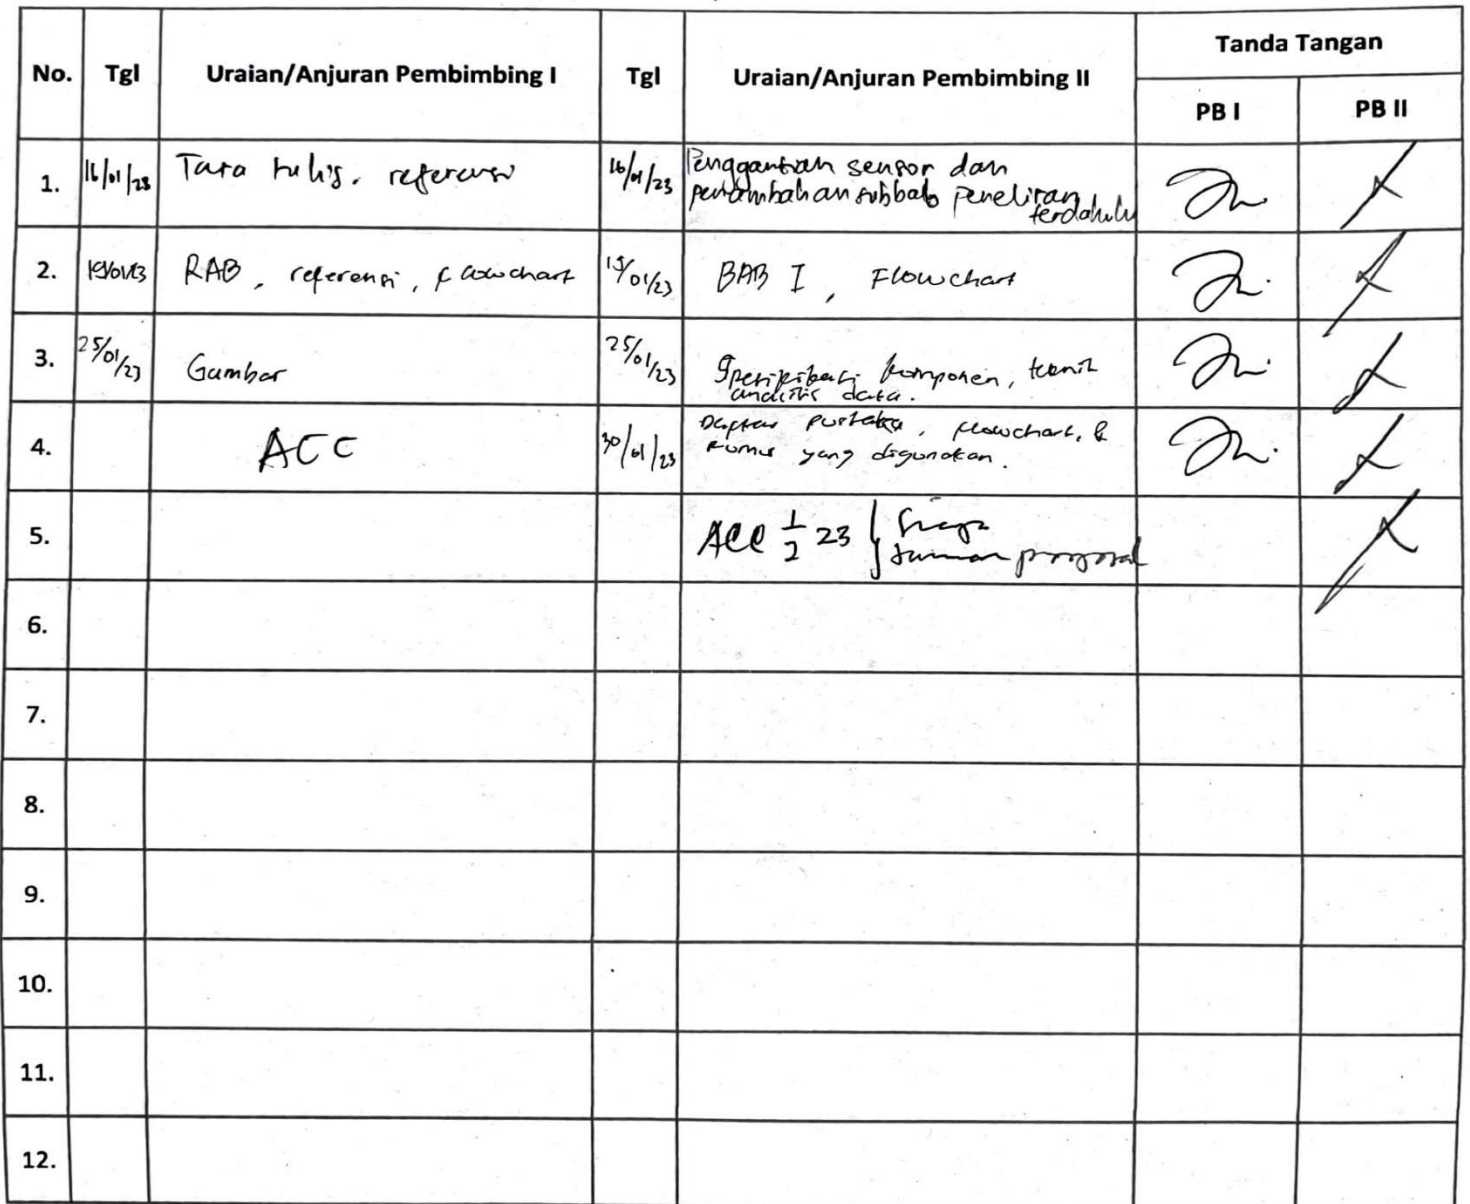 No. Tgl Uraian/Anjuran Pembimbing I Tgl Uraian/Anjuran Pembimbing II Tanda Tangan
PB I PB II
1. 16/01/23 Tata tulis, referensi 16/01/23 Penggantian sensor dan
penambahan subbab penelitian
terdahulu
2. RAB, referensi, flowchart BAB I, Flowchart
3. 25/01/23 Gambar 25/01/23 Spesifikasi komponen, teknik
analisis data.
4. ACC 30/01/23 Daftar pustaka, flowchart, &
rumus yang digunakan.
5. ACC 1/2 23
proposal
6.
7.
8.
9.
10.
11.
12.